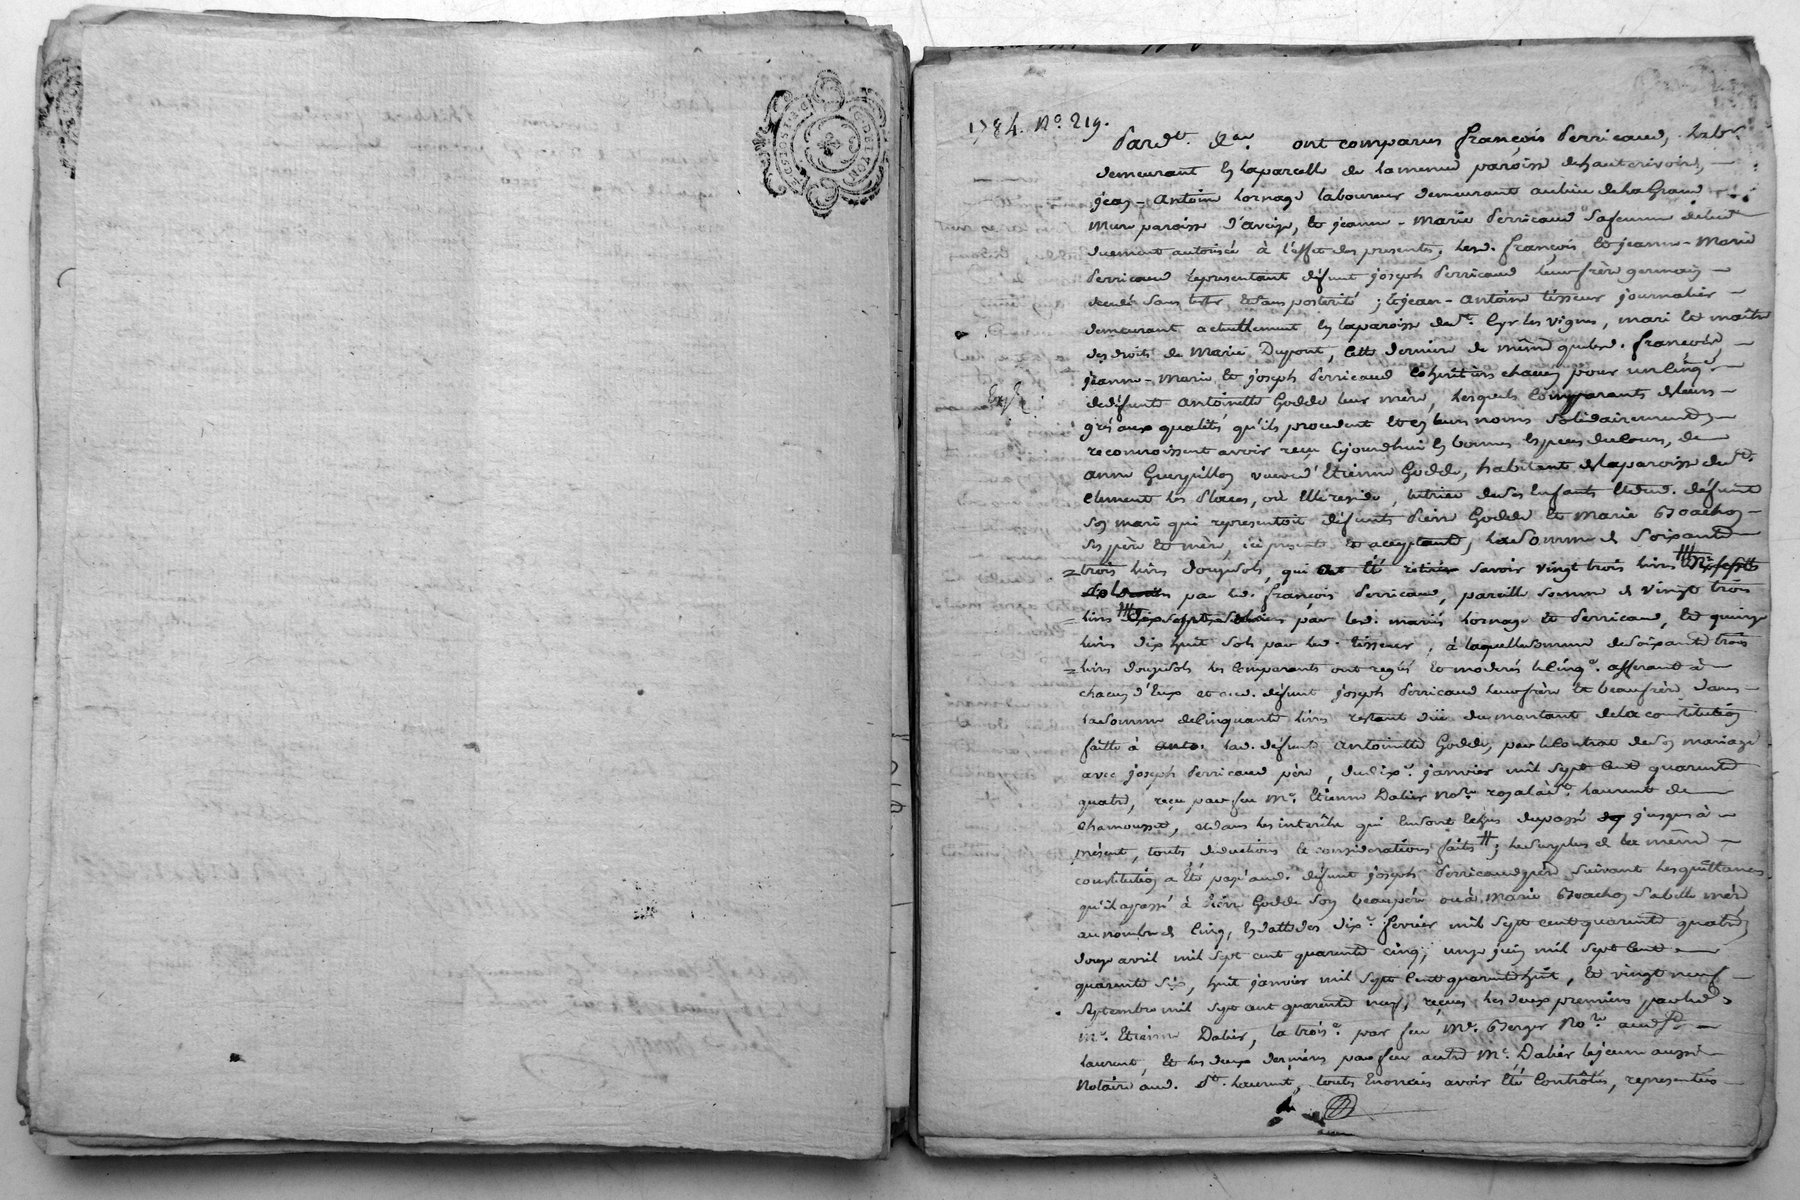 1784. No. 219.
Pardt. &a. ont comparus françois Perricaud, labr.
demeurant en laparcelle de lamenue paroisse dehauterivoire,
jean-Antoine Lornage laboureur demeurant aulieu delaGrand
Mure paroisse d'aveize, et jeanne-Marie Perricaud safemme deluit
duement autorisée à l'effet des presentes, lesd. françois et jeanne-Marie
Perricaud representant défunt joseph Perricaud leur frère germain
decedé sans tester etsans posterité ; et jean-Antoine tisseur journalier
demeurant actuellement en laparoisse de st. Cyr les vignes, mari et maître
des droits de Marie Dupont, cette derniere de même quelesd. françois
jeanne-Marie et joseph Perricaud cohéritiers chacun pour un cinqe.
dedéfunte Antoinette Godde leur mère, lesquels comparants deleurs
grés aux qualités qu'ils procedent et en leurs noms solidairement
reconnoissent avoir reçu cejourdhui en bonnes especes ducours, de
anne Guerpillon veuve d'Etienne Godde, habitant delaparoisse de st.
Clement les Places, où elle reside, tutrice deses enfants etdud. défunt
son mari qui representoit défunts Pierre Godde et Marie
ses père et mère, ici presente et acceptante, lasomme de soixante
trois livres douzesols, qui ont été retirés savoir vingt trois livres
par led. françois Perricaud, pareille somme de vingt trois
livres par lesd. mariés Lornage et Perricaud, et quinze
livres dix huit sols par led. tisseur, à laquellesomme desoixante trois
livres douzesols les comparants ont reglés et moderés lecinqe. afferant à
chacun d'eux et aud. défunt joseph Perricaud leurfrère et beaufrère dans
lasomme decinquante livres restant düe dumontant delaconstitution
faitte à lad. défunte Antoinette Godde, par lecontrat deson mariage
avec joseph Perricaud père, dudixe. janvier mil sept cent quarente
quatre, reçu par feu Me. Etienne Dalier Nore. royal à st. Laurent de
Chamousset, etdans les interêts qui ensont échus dupassé jusques à
présent, touttes deductions et considerations faites ; lesurplus de la même
constitution a été payé aud. défunt joseph Perricaud père suivant lesquittances
qu'il apassé à Pierre Godde son beaupère ouà Marie sabelle mère,
aunombre de cinq, en datte des dixe. fevrier mil sept cent quarente quatre,
douze avril mil sept cent quarente cinq, unze juin mil sept cent
quarente six, huit janvier mil sept cent quarente huit, et vingt neuf
septembre mil sept cent quarente neuf, reçues les deux premieres parled.
Me. Etienne Dalier, la troise. par feu Me. Berger Nore. audit st.
Laurent, et les deux dernieres par feu autre Me. Dalier lejeune aussi
Notaire aud. st. Laurent, touttes enoncées avoir été contrôlées, representées